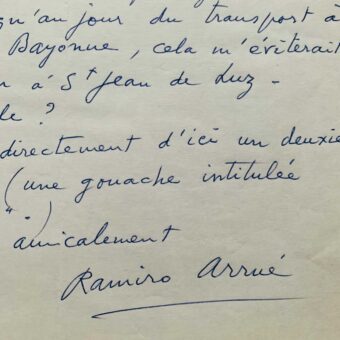 qu'au jour du transport à
Bayonne, cela m'éviterait
à St Jean de Luz -
le ?
directement d'ici un deuxie
(une gouache intitulée
". )
amicalement
Ramiro Arrué